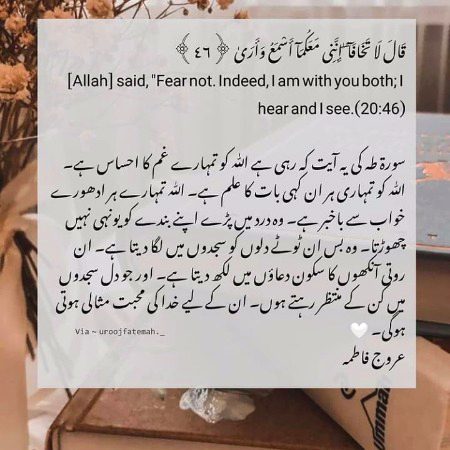 قَالَ لَا تَخَافَآ ۖ إِنَّنِى مَعَكُمَآ أَسْمَعُ وَأَرَىٰ ﴿٤٦﴾
[Allah] said, "Fear not. Indeed, I am with you both; I
hear and I see.(20:46)
سورۃ طہ کی یہ آیت کہ رہی ہے اللہ کو تمہارے غم کا احساس ہے۔
اللہ کو تمہاری ہر ان کہی بات کا علم ہے۔ اللہ تمہارے ہر ادھورے
خواب سے باخبر ہے۔ وہ درد میں پڑے اپنے بندے کو یونہی نہیں
چھوڑتا۔ وہ بس ان ٹوٹے دلوں کو سجدوں میں لگا دیتا ہے۔ ان
روتی آنکھوں کا سکون دعاؤں میں لکھ دیتا ہے۔ اور جو دل سجدوں
میں کن کے منتظر رہتے ہوں۔ ان کے لیے خدا کی محبت مثالی ہوتی
ہوگی۔ 🤍
Via ~ uroojfatemah._
عروج فاطمہ